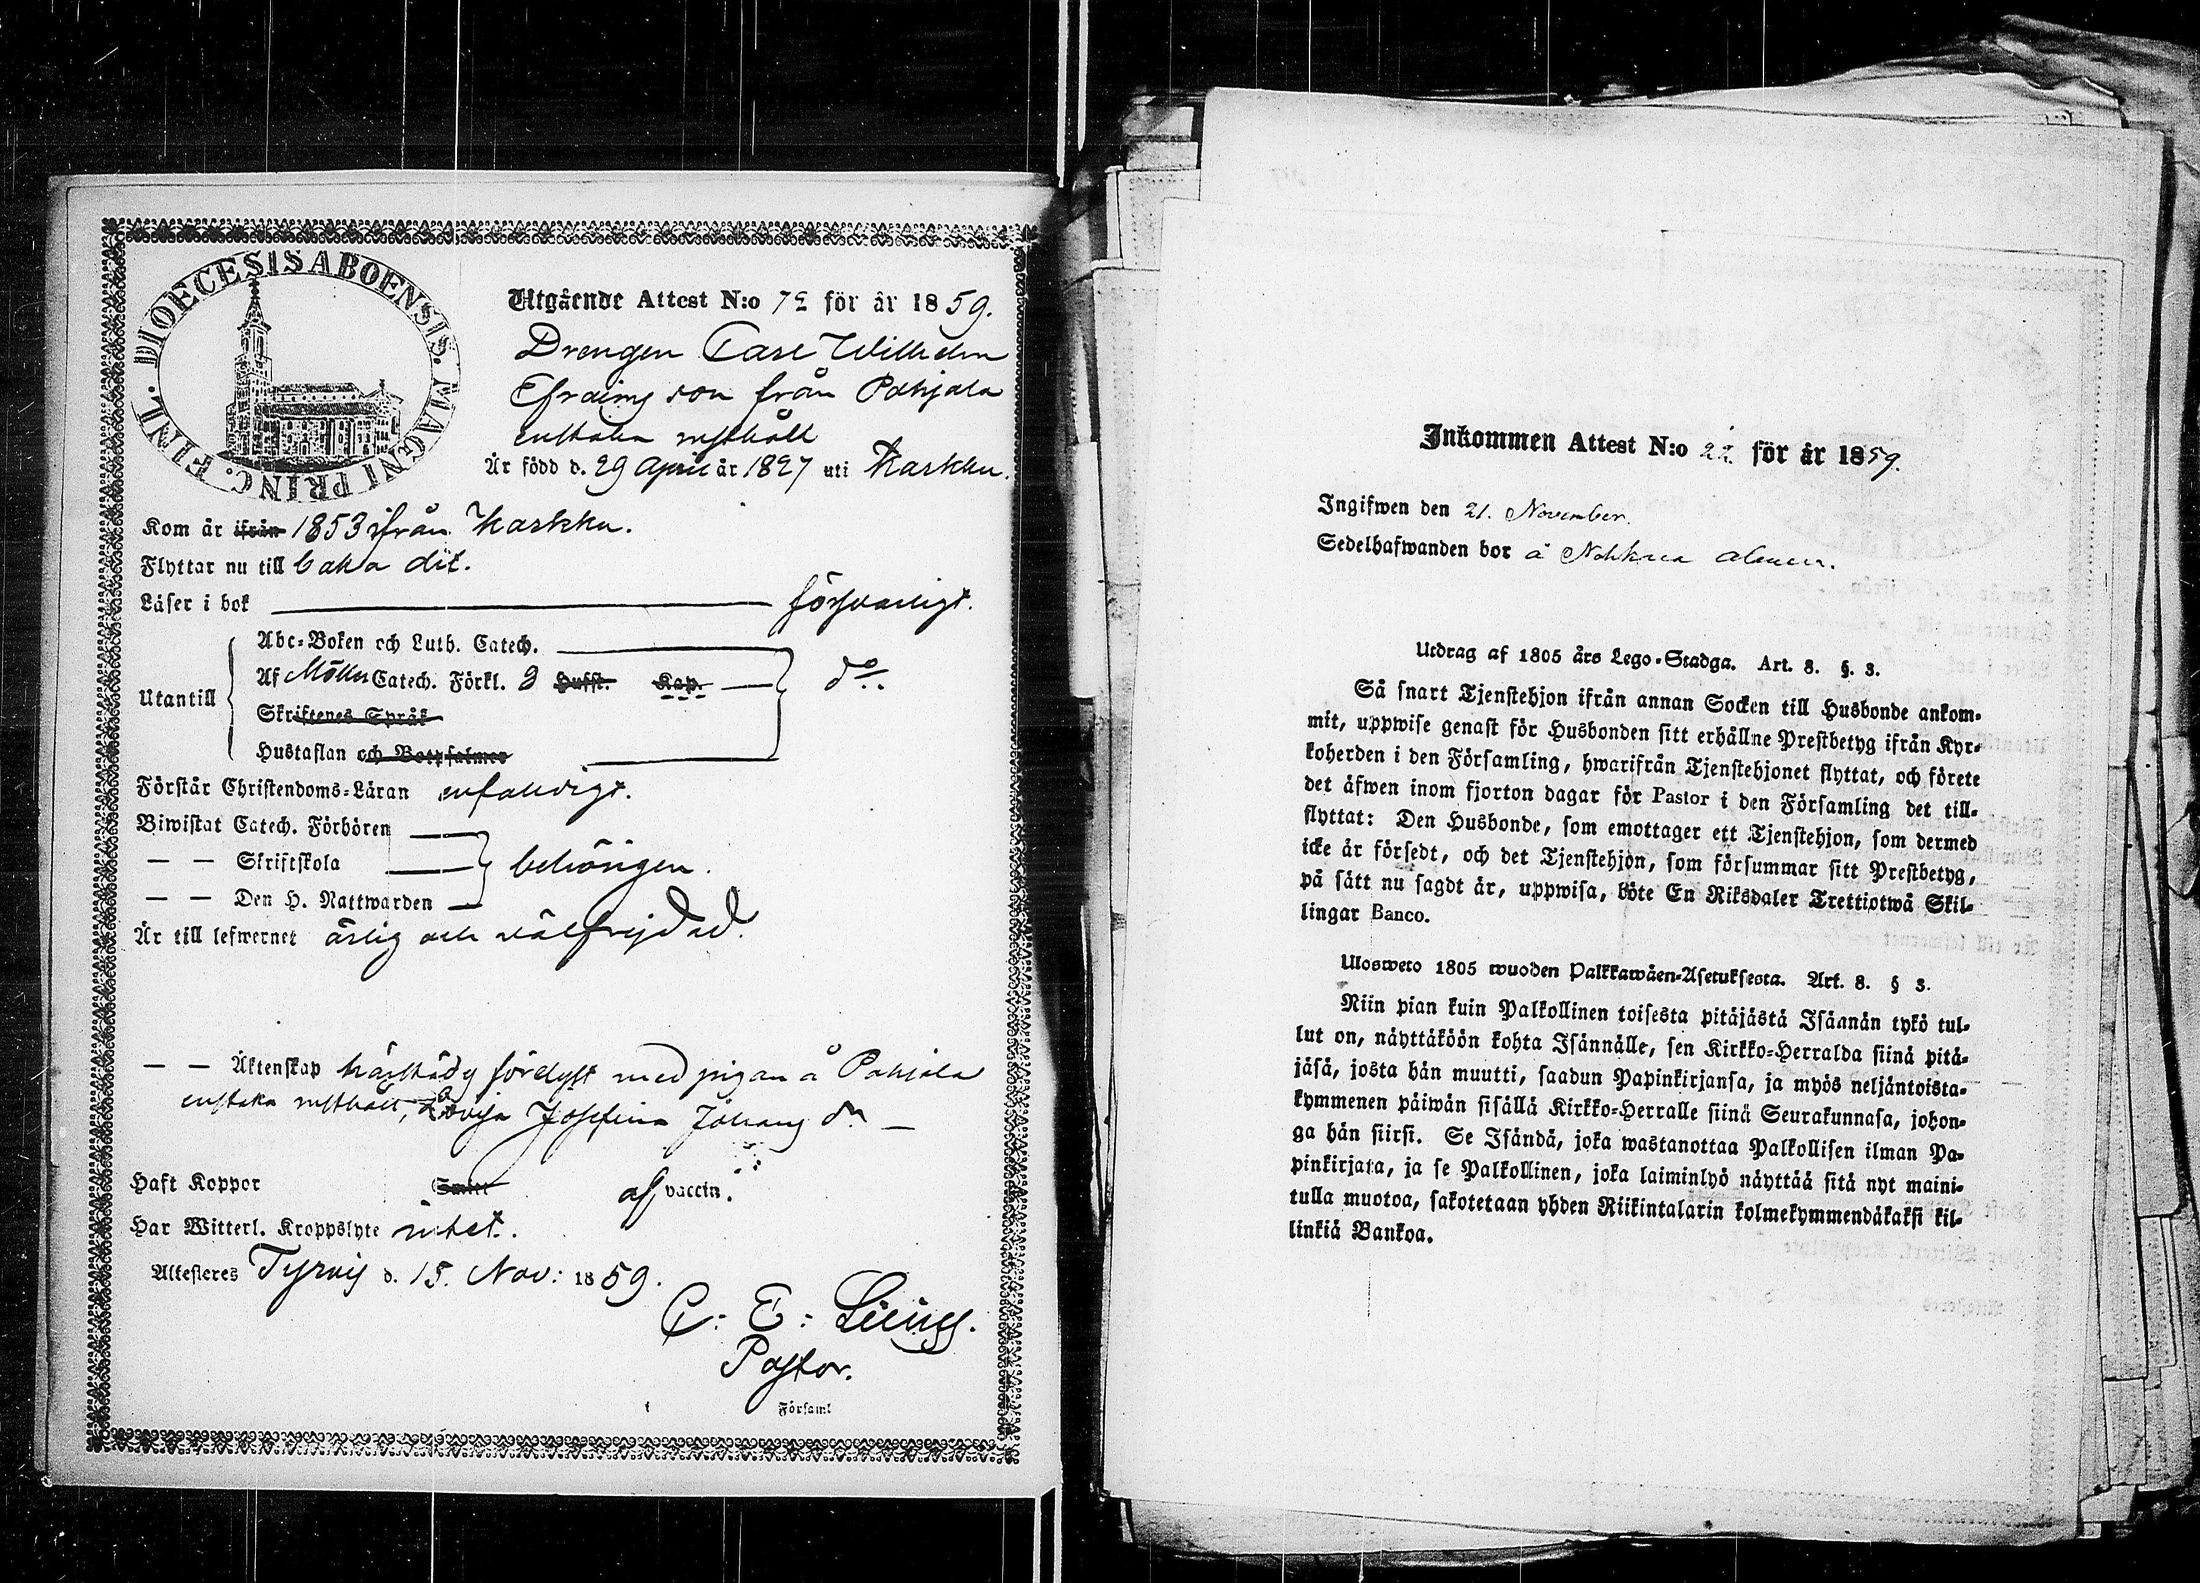 DIOECESIS ABOENSIS. MAGNI PRINC. FINL.
Utgående Attest N:o 72 för år 1859.
Drengen Carl Wilhelm
Efraims son från Pohjala
enstaka rusthåll
Är född d. 29 April år 1827 uti Karkku.
Kom år ifrån 1853 ifrån Karkku.
Flyttar nu till baka dit.
Läser i bok försvarligt.
Utantill
Abc-Boken och Luth. Catech.
Af Möllers Catech. Förkl. 3 Hufst. Kap. do.
Skriftenes Språk
Hustaflan och Botpsalmer
Förstår Christendoms-Läran enfaldigt.
Biwistat Catech. Förhören
— — Skriftskola behörigen.
— — Den H. Nattwarden
Är till lefwernet ärlig och välfrejdad.
— — Äktenskap härstädes förlyst med pigan å Pohjala
enstaka rusthåll, Lovisa Josefina Johans dr —
Haft Koppor Smitt af vaccin.
Har Witterl. Kroppslyte intet.
Attesteres Tyrvis d. 15. Nov: 1859.
C: E:
Pastor.
Församl
Inkommen Attest N:o 22 för år 1859.
Ingifwen den 21. November.
Sedelhafwanden bor å
Utdrag af 1805 års Lego-Stadga. Art. 8. §. 3.
Så snart Tjenstehjon ifrån annan Socken till Husbonde ankom-
mit, uppwise genast för Husbonden sitt erhållne Prestbetyg ifrån Kyr-
koherden i den Församling, hwarifrån Tjenstehjonet flyttat, och förete
det äfwen inom fjorton dagar för Pastor i den Församling det till-
flyttat: Den Husbonde, som emottager ett Tjenstehjon, som dermed
icke är försedt, och det Tjenstehjon, som försummar sitt Prestbetyg,
på sätt nu sagdt är, uppwisa, böte En Riksdaler Trettiotwå Skil-
lingar Banco.
Ulosweto 1805 wuoden Palkkawäen-Asetuksesta. Art. 8. § 3.
Niin pian kuin Palkollinen toisesta pitäjästä Isännän tykö tul-
lut on, näyttäköön kohta Isännälle, sen Kirkko-Herralda siinä pitä-
jäsä, josta hän muutti, saadun Papinkirjansa, ja myös neljäntoista-
kymmenen päiwän sisällä Kirkko-Herralle siinä Seurakunnasa, johon-
ga hän siirsi. Se Isändä, joka wastanottaa Palkollisen ilman Pa-
pinkirjata, ja se Palkollinen, joka laiminlyö näyttää sitä nyt maini-
tulla muotoa, sakotetaan yhden Riikintalarin kolmekymmendäkaksi kil-
linkiä Bankoa.